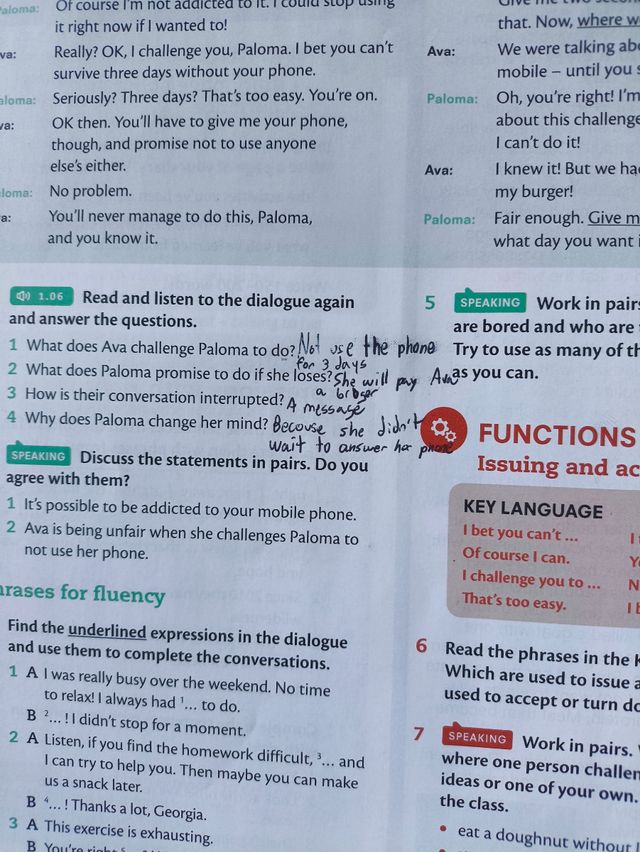 Paloma: Of course I'm not addicted to it. I could stop using
it right now if I wanted to!
Really? OK, I challenge you, Paloma. I bet you can't
survive three days without your phone.
Seriously? Three days? That's too easy. You're on.
OK then. You'll have to give me your phone,
though, and promise not to use anyone
else's either.
No problem.
You'll never manage to do this, Paloma,
and you know it.
1.06 Read and listen to the dialogue again
and answer the questions.
1 What does Ava challenge Paloma to do? Not use the phone
for 3 days
2 What does Paloma promise to do if she loses? She will pay Ava
a
3 How is their conversation interrupted? A message
4 Why does Paloma change her mind? Becouse she didn't
wait to answer her phone
SPEAKING Discuss the statements in pairs. Do you
agree with them?
1 It's possible to be addicted to your mobile phone.
2 Ava is being unfair when she challenges Paloma to
not use her phone.
rases for fluency
Find the underlined expressions in the dialogue
and use them to complete the conversations.
1 A I was really busy over the weekend. No time
to relax! I always had 1... to do.
B 2... ! I didn't stop for a moment.
2 A Listen, if you find the homework difficult, 3... and
I can try to help you. Then maybe you can make
us a snack later.
B 4... ! Thanks a lot, Georgia.
3 A This exercise is exhausting.
B You're right
that. Now, where w
Ava: We were talking ab
mobile – until you s
Paloma: Oh, you're right! I'm
about this challenge
I can't do it!
Ava: I knew it! But we ha
my burger!
Paloma: Fair enough. Give m
what day you want
5 SPEAKING Work in pairs
are bored and who are
Try to use as many of th
as you can.
FUNCTIONS
Issuing and ac
KEY LANGUAGE
I bet you can't ...
Of course I can.
I challenge you to ...
That's too easy.
6 Read the phrases in the
Which are used to issue a
used to accept or turn do
7 SPEAKING Work in pairs.
where one person challen
ideas or one of your own.
the class.
• eat a doughnut without